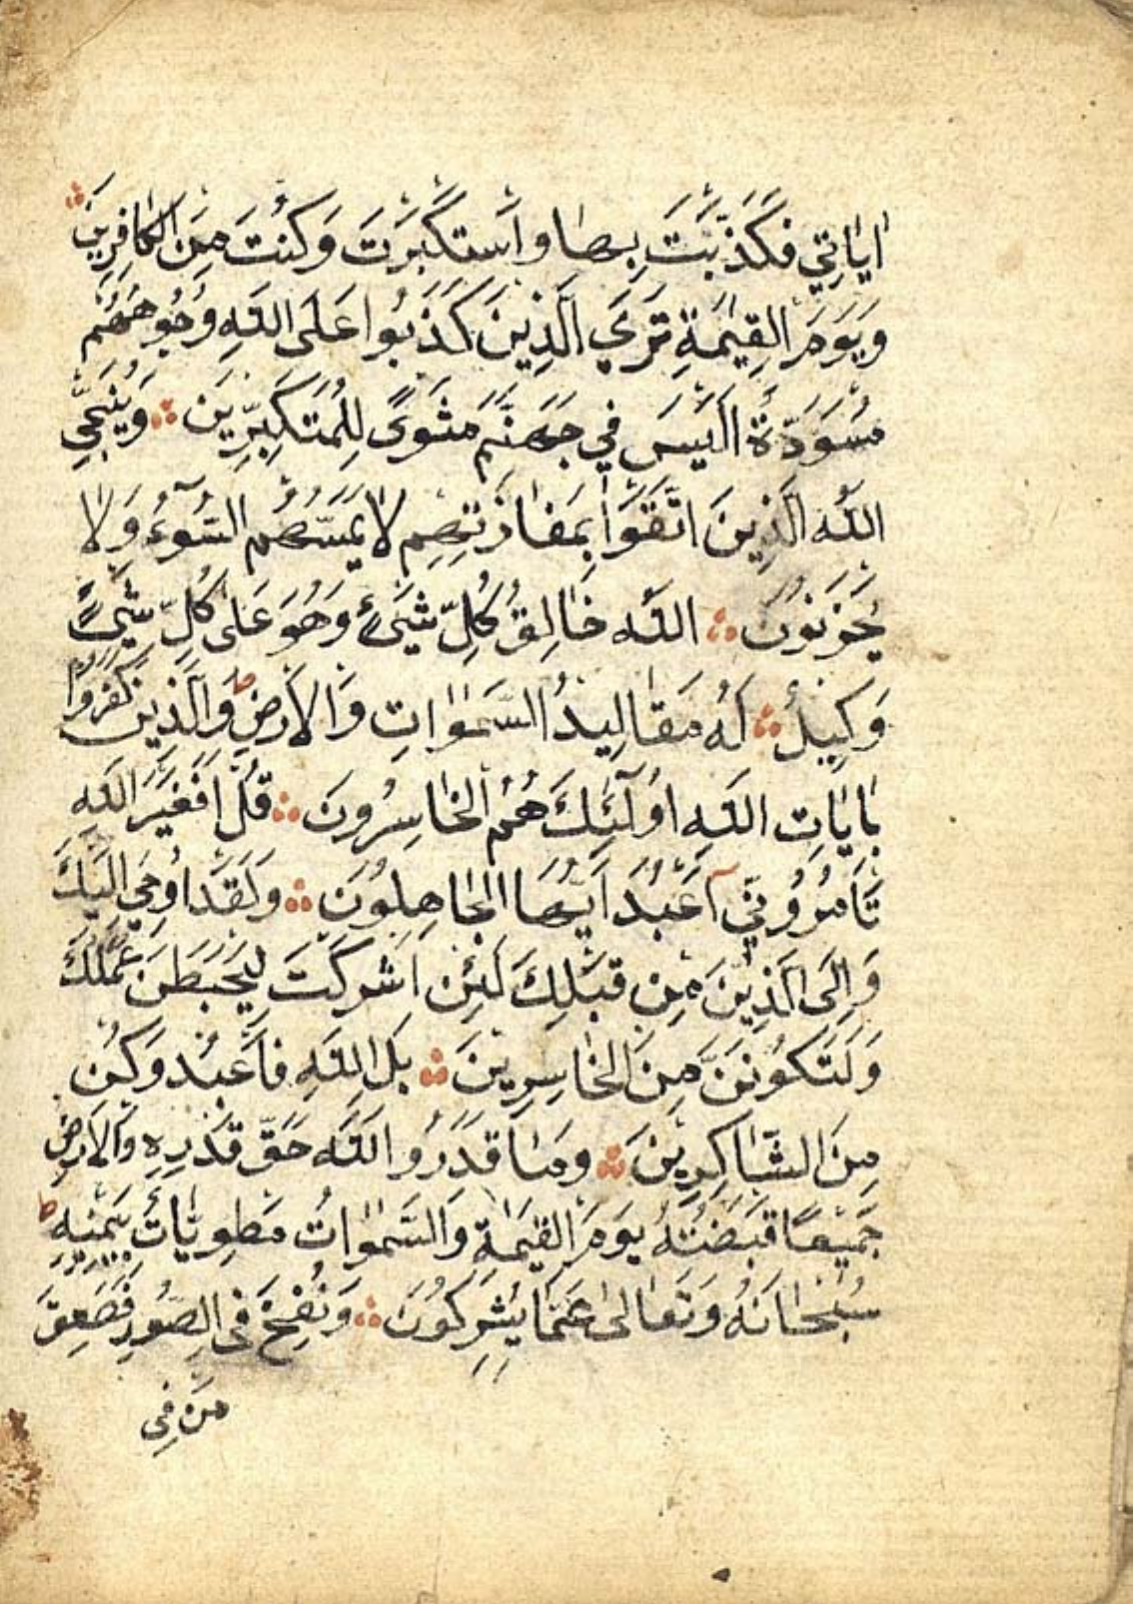 اٰيَاتِي فَكَذَّبْتَ بِهَا وَاسْتَكْبَرْتَ وَكُنْتَ مِنَ الْكَافِرِينَ ۞
وَيَوْمَ الْقِيٰمَةِ تَرَي الَّذِينَ كَذَبُوا عَلَى اللّٰهِ وُجُوهُهُمْ
مُسْوَدَّةٌ اَلَيْسَ فِي جَهَنَّمَ مَثْوًى لِلْمُتَكَبِّرِينَ ۞ وَيُنَجِّي
اللّٰهُ الَّذِينَ اتَّقَوْا بِمَفَازَتِهِمْ لَا يَمَسُّهُمُ السُّوٓءُ وَلَا
يَحْزَنُونَ ۞ اَللّٰهُ خَالِقُ كُلِّ شَيْءٍ وَهُوَ عَلٰى كُلِّ شَيْءٍ
وَكِيلٌ ۞ لَهُ مَقَالِيدُ السَّمٰوَاتِ وَالْاَرْضِ ط وَالَّذِينَ كَفَرُوا
بِاٰيَاتِ اللّٰهِ اُولٰٓئِكَ هُمُ الْخَاسِرُونَ ۞ قُلْ اَفَغَيْرَ اللّٰهِ
تَاْمُرُوٓنِّي اَعْبُدُ اَيُّهَا الْجَاهِلُونَ ۞ وَلَقَدْ اُوحِيَ اِلَيْكَ
وَاِلَى الَّذِينَ مِنْ قَبْلِكَ لَئِنْ اَشْرَكْتَ لَيَحْبَطَنَّ عَمَلُكَ
وَلَتَكُونَنَّ مِنَ الْخَاسِرِينَ ۞ بَلِ اللّٰهَ فَاعْبُدْ وَكُنْ
مِنَ الشَّاكِرِينَ ۞ وَمَا قَدَرُوا اللّٰهَ حَقَّ قَدْرِهِ وَالْاَرْضُ
جَمِيعًا قَبْضَتُهُ يَوْمَ الْقِيٰمَةِ وَالسَّمٰوَاتُ مَطْوِيَّاتٌ بِيَمِينِهِ ط
سُبْحَانَهُ وَتَعَالٰى عَمَّا يُشْرِكُونَ ۞ وَنُفِخَ فِى الصُّورِ فَصَعِقَ
مَنْ فِى